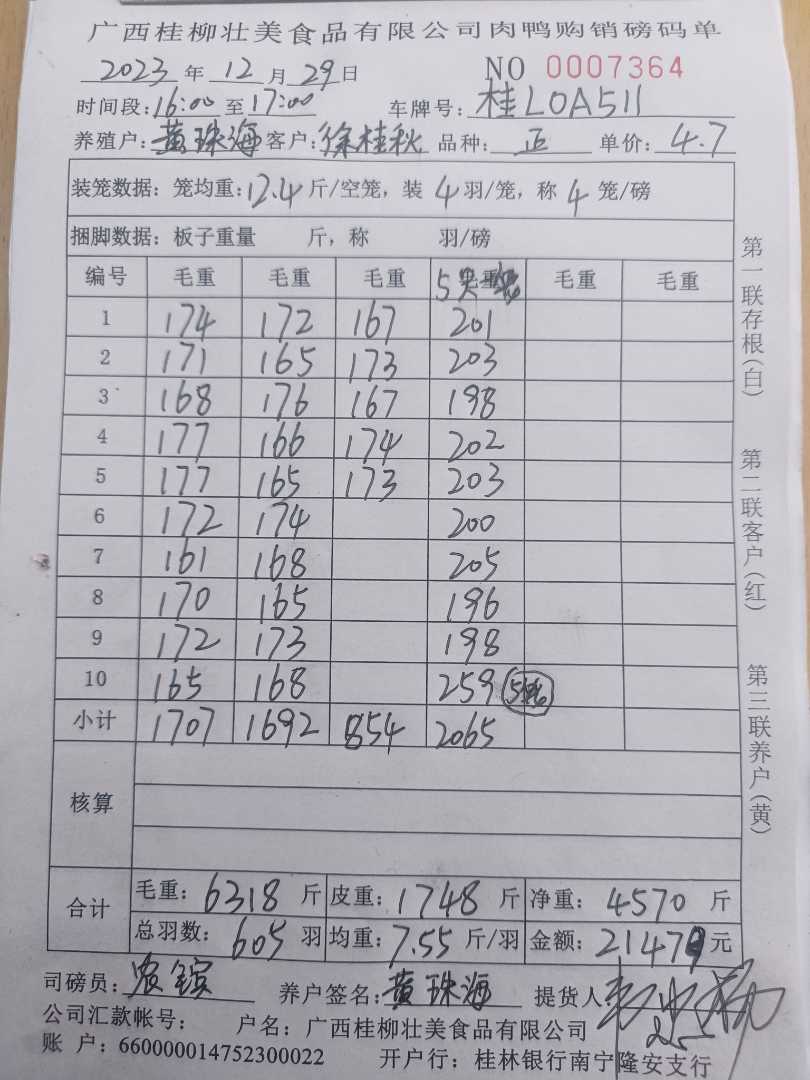 广西桂柳壮美食品有限公司肉鸭购销磅码单
2023年12月29日 NO 0007364
时间段:16:00至17:00 车牌号:桂L0A511
养殖户:黄珠海 客户:徐桂秋 品种:正 单价:4.7
装笼数据:笼均重:12.4斤/空笼,装4羽/笼,称4笼/磅
捆脚数据:板子重量 斤,称 羽/磅
编号 毛重 毛重 毛重 5只 毛重 毛重
1 174 172 167 201
2 171 165 173 203
3 168 176 167 198
4 177 166 174 202
5 177 165 173 203
6 172 174 200
7 161 168 205
8 170 165 196
9 172 173 198
10 165 168 259
小计 1707 1692 854 2065
核算
合计 毛重:6318斤 皮重:1748斤 净重:4570斤
总羽数:605羽 均重:7.55斤/羽 金额:21479元
司磅员: 养户签名:黄珠海 提货人
公司汇款帐号: 户名:广西桂柳壮美食品有限公司
账 户:660000014752300022 开户行:桂林银行南宁隆安支行
第一联存根(白)
第二联客户(红)
第三联养户(黄)